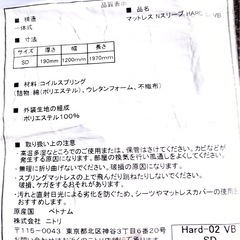 品質表示
■ 構造
一体式
■ 品名
マットレス Nスリープ HARD 02 VB
■ 寸法
サイズ 厚さ 幅 長さ
SD 190mm 1200mm 1970mm
■ 材料:コイルスプリング
(詰物:綿(ポリエステル)、ウレタンフォーム、不織布)
■ 外装生地の組成
ポリエステル100%
■ 取り扱い上の注意
・高温多湿なところでのご使用または、保管はさけてください。カビなどが
発生する原因になります。部屋の換気を行い風通しをよくしてください。
・無理に折り曲げないでください。破損の原因になります。
・スプリングマットレスの上で飛んだり跳ねたりしないでください。
破損、ケガをするおそれがあります。
・汚れと直射日光による劣化を防ぐため、シーツやマットレスカバーの使用を
原産国 ベトナム
株式会社 ニトリ
〒115-0043 東京都北区神谷3丁目6番20号
Hard-02 VB
SD